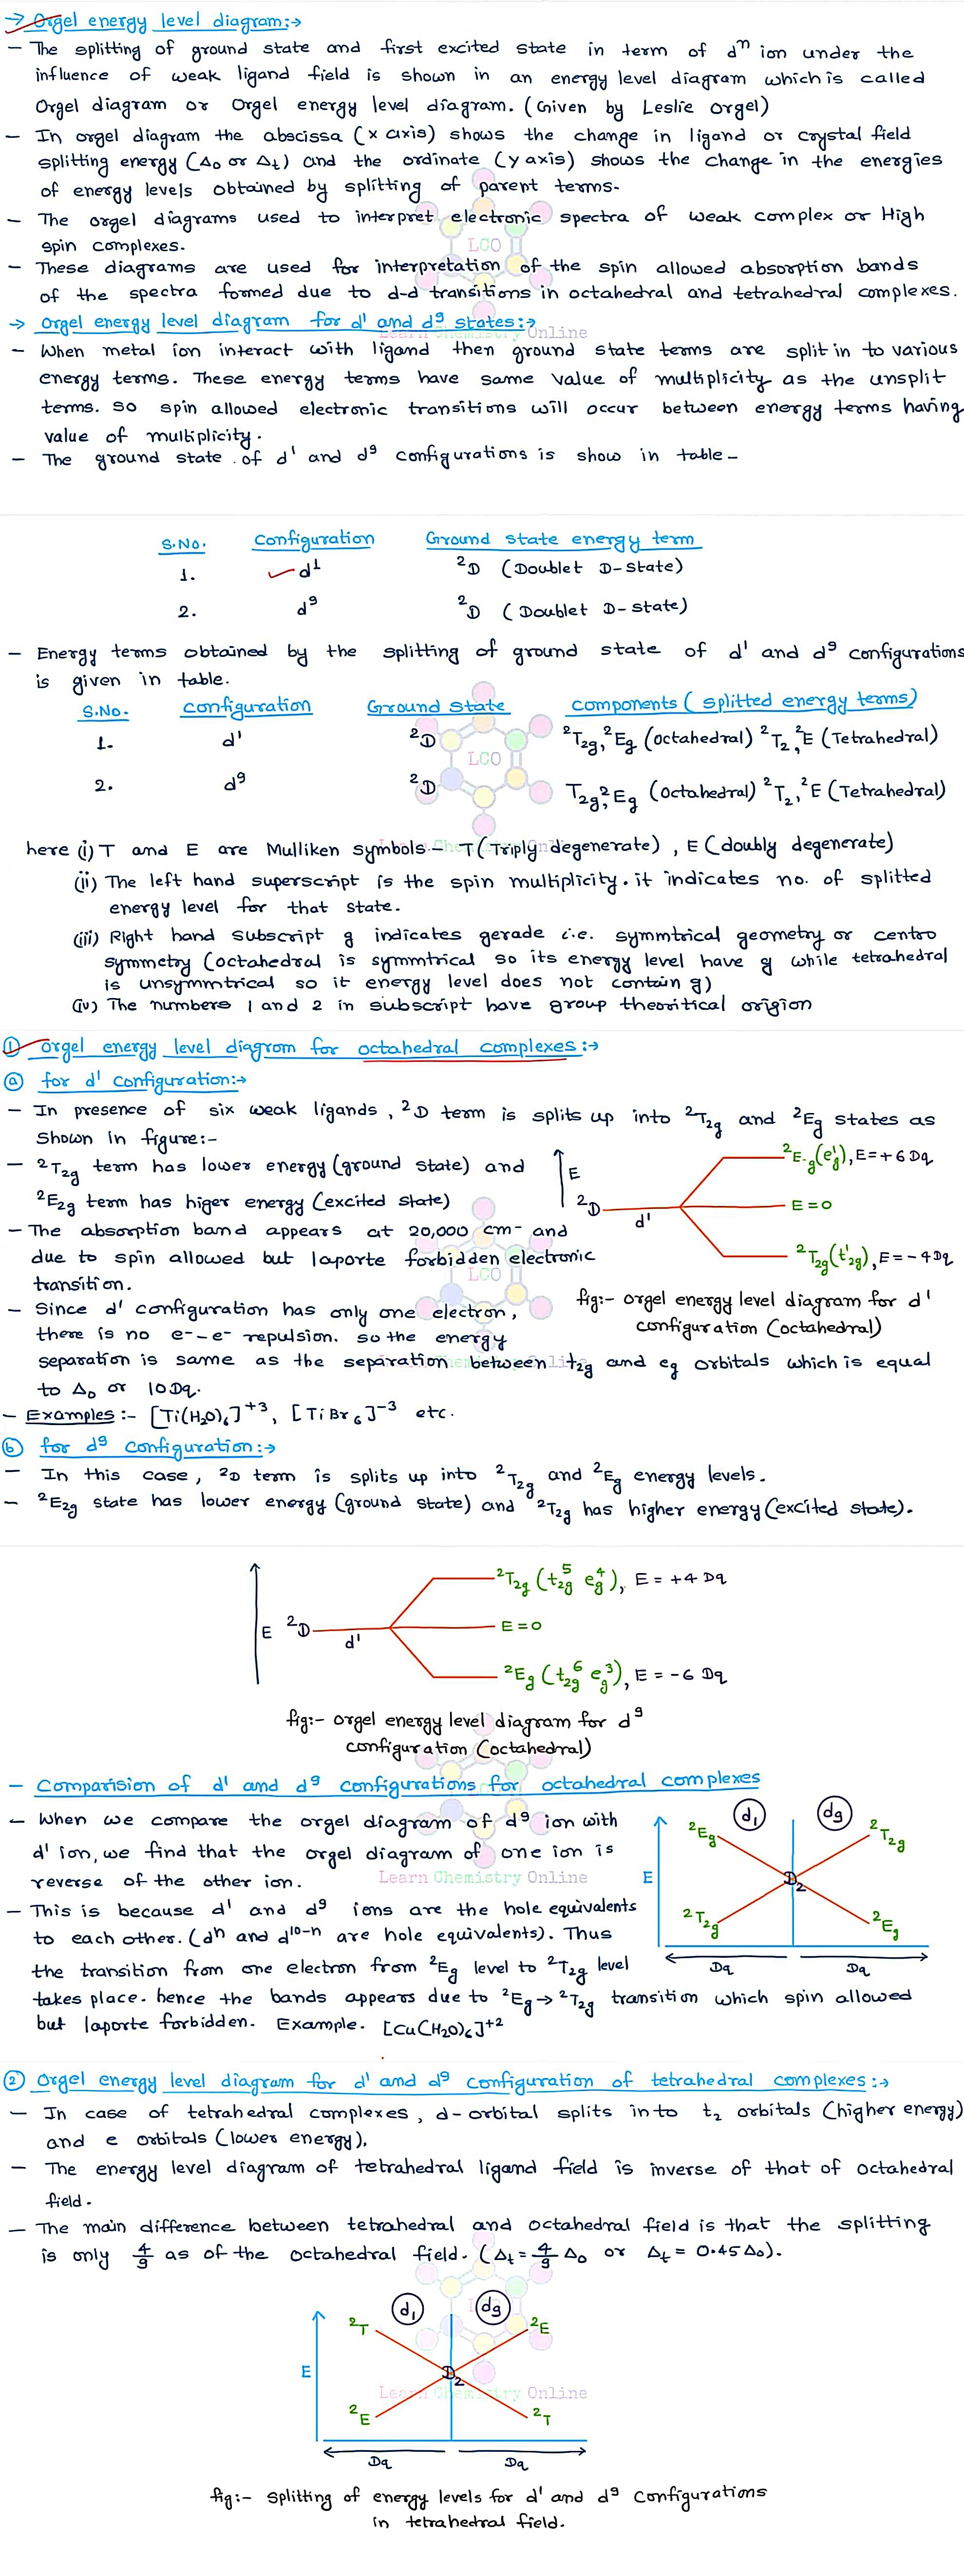 → Orgel energy level diagram:→
- The splitting of ground state and first excited state in term of dⁿ ion under the
influence of weak ligand field is shown in an energy level diagram which is called
Orgel diagram or Orgel energy level diagram. (Given by Leslie orgel)
- In orgel diagram the abscissa (x axis) shows the change in ligand or crystal field
splitting energy (Δo or Δt) and the ordinate (y axis) shows the change in the energies
of energy levels obtained by splitting of parent terms.
- The orgel diagrams used to interpret electronic spectra of weak complex or High
spin complexes.
LCO
- These diagrams are used for interpretation of the spin allowed absorption bands
of the spectra formed due to d-d transitions in octahedral and tetrahedral complexes.
→ Orgel energy level diagram for d¹ and d⁹ states:→
Learn Chemistry Online
- When metal ion interact with ligand then ground state terms are split in to various
energy terms. These energy terms have same value of multiplicity as the unsplit
terms. so spin allowed electronic transitions will occur between energy terms having
value of multiplicity.
- The ground state of d¹ and d⁹ configurations is show in table-
S.No. Configuration Ground state energy term
1. d¹ ²D (Doublet D-state)
2. d⁹ ²D (Doublet D-state)
- Energy terms obtained by the splitting of ground state of d¹ and d⁹ configurations
is given in table.
S.No. configuration Ground state components (splitted energy terms)
1. d¹ ²D ²T2g, ²Eg (octahedral) ²T2, ²E (Tetrahedral)
LCO
2. d⁹ ²D T2g, ²Eg (octahedral) ²T2, ²E (Tetrahedral)
Learn Chemistry Online
here (i) T and E are Mulliken symbols- T(Triply degenerate), E (doubly degenerate)
(ii) The left hand superscript is the spin multiplicity. it indicates no. of splitted
energy level for that state.
(iii) Right hand subscript g indicates gerade i.e. symmtrical geometry or centro
symmetry (octahedral is symmtrical so its energy level have g while tetrahedral
is unsymmtrical so it energy level does not contain g)
(iv) The numbers 1 and 2 in subscript have group theoritical origion
① orgel energy level diagrom for octahedral complexes:→
ⓐ for d¹ configuration:→
- In presence of six weak ligands, ²D term is splits up into ²T2g and ²Eg states as
shown in figure:-
- ²T2g term has lower energy (ground state) and
²E2g term has higer energy (excited state)
- The absorption band appears at 20,000 cm- and
due to spin allowed but laporte forbidden electronic
transition.
- Since d¹ configuration has only one electron,
there is no e--e- repulsion. so the energy
separation is same as the separation between t2g and eg orbitals which is equal
to Δo or 10Dq.
E
²D
d¹
²Eg(eg¹), E=+6Dq
E=0
²T2g(t2g¹), E=-4Dq
fig:- orgel energy level diagram for d¹
configuration (octahedral)
LCO
Learn Chemistry Online
- Examples:- [Ti(H2O)6]⁺³, [TiBr6]⁻³ etc.
ⓑ for d⁹ configuration:→
- In this case, ²D term is splits up into ²T2g and ²Eg energy levels.
- ²E2g state has lower energy (ground state) and ²T2g has higher energy (excited state).
E
²D
d¹
²T2g (t2g⁵ eg⁴), E = +4 Dq
E=0
²Eg (t2g⁶ eg³), E = -6 Dq
fig:- orgel energy level diagram for d⁹
configuration (octahedral)
- Comparision of d¹ and d⁹ configurations for octahedral complexes
- When we compare the orgel diagram of d⁹ ion with
d¹ ion, we find that the orgel diagram of one ion is
reverse of the other ion.
Learn Chemistry Online
- This is because d¹ and d⁹ ions are the hole equivalents
to each other. (dⁿ and d¹⁰⁻ⁿ are hole equivalents). Thus
the transition from one electron from ²Eg level to ²T2g level
takes place. hence the bands appears due to ²Eg→²T2g transition which spin allowed
but laporte forbidden. Example. [Cu(H2O)6]⁺²
d1 d9
²Eg ²T2g
E D2
²T2g ²Eg
Dq Dq
② Orgel energy level diagram for d¹ and d⁹ configuration of tetrahedral complexes:→
- In case of tetrahedral complexes, d-orbital splits in to t2 orbitals (higher energy)
and e orbitals (lower energy),
- The energy level diagram of tetrahedral ligand field is inverse of that of octahedral
field.
- The main difference between tetrahedral and octahedral field is that the splitting
is only 4/9 as of the octahedral field. (Δt = 4/9 Δo or Δt = 0.45 Δo).
d1 d9
²T ²E
E D2
Learn Chemistry Online
²E ²T
Dq Dq
fig:- splitting of energy levels for d¹ and d⁹ configurations
in tetrahedral field.